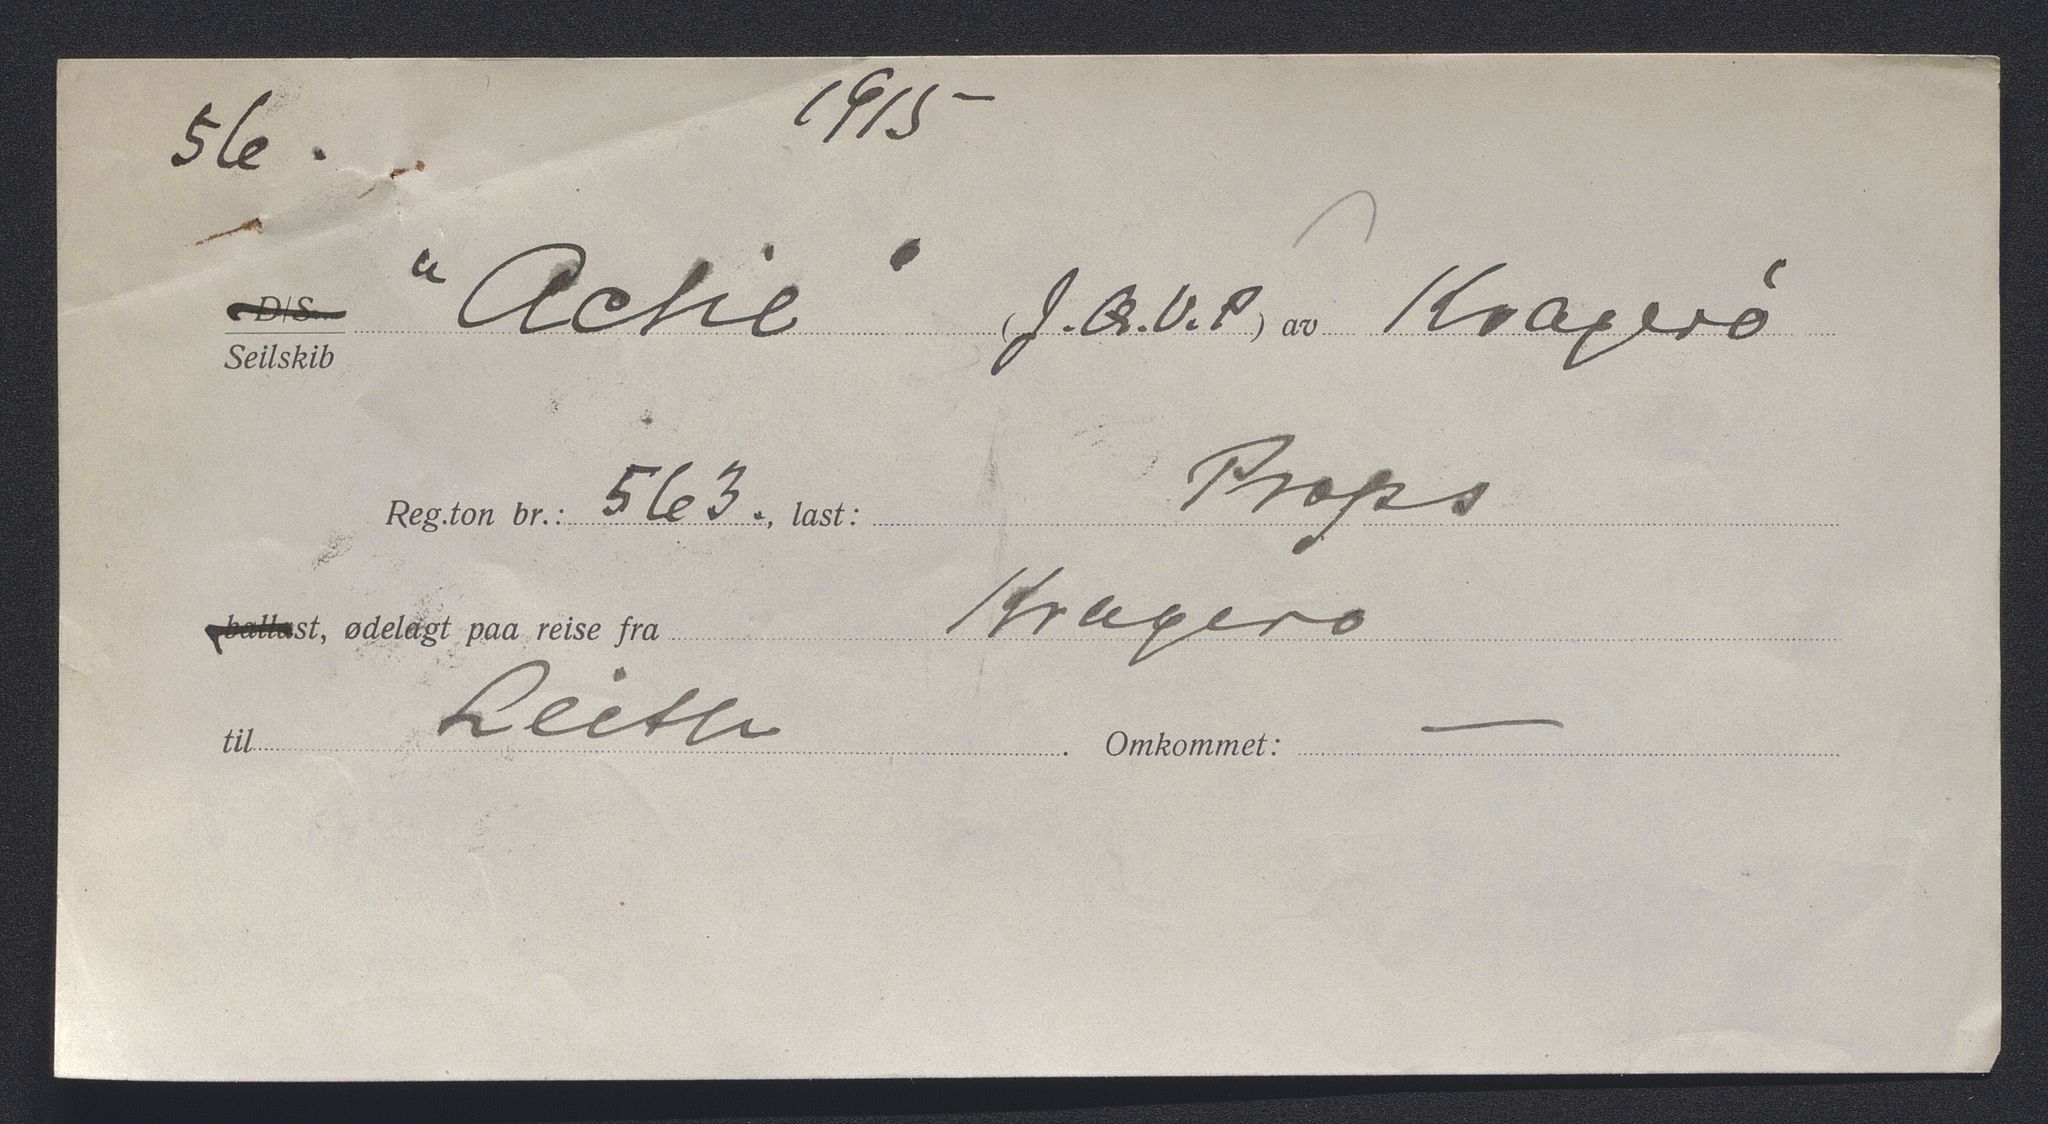 56. 1915
D/S "Actie" (J.Q.V.P) av Kragerö
Seilskib
Reg.ton br.: 563., last: Props
ballast, ødelagt paa reise fra Kragerø
til Leith. Omkommet: —